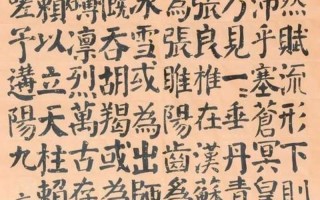 然賦流形下則
沛乎塞蒼冥皇
乃見一〻垂丹青
張良椎在漢蘇
為張睢陽齒爲
冰雪或為出師
慨吞胡羯或為
礴凛烈萬古存
賴以立天柱賴
嗟予遘陽九